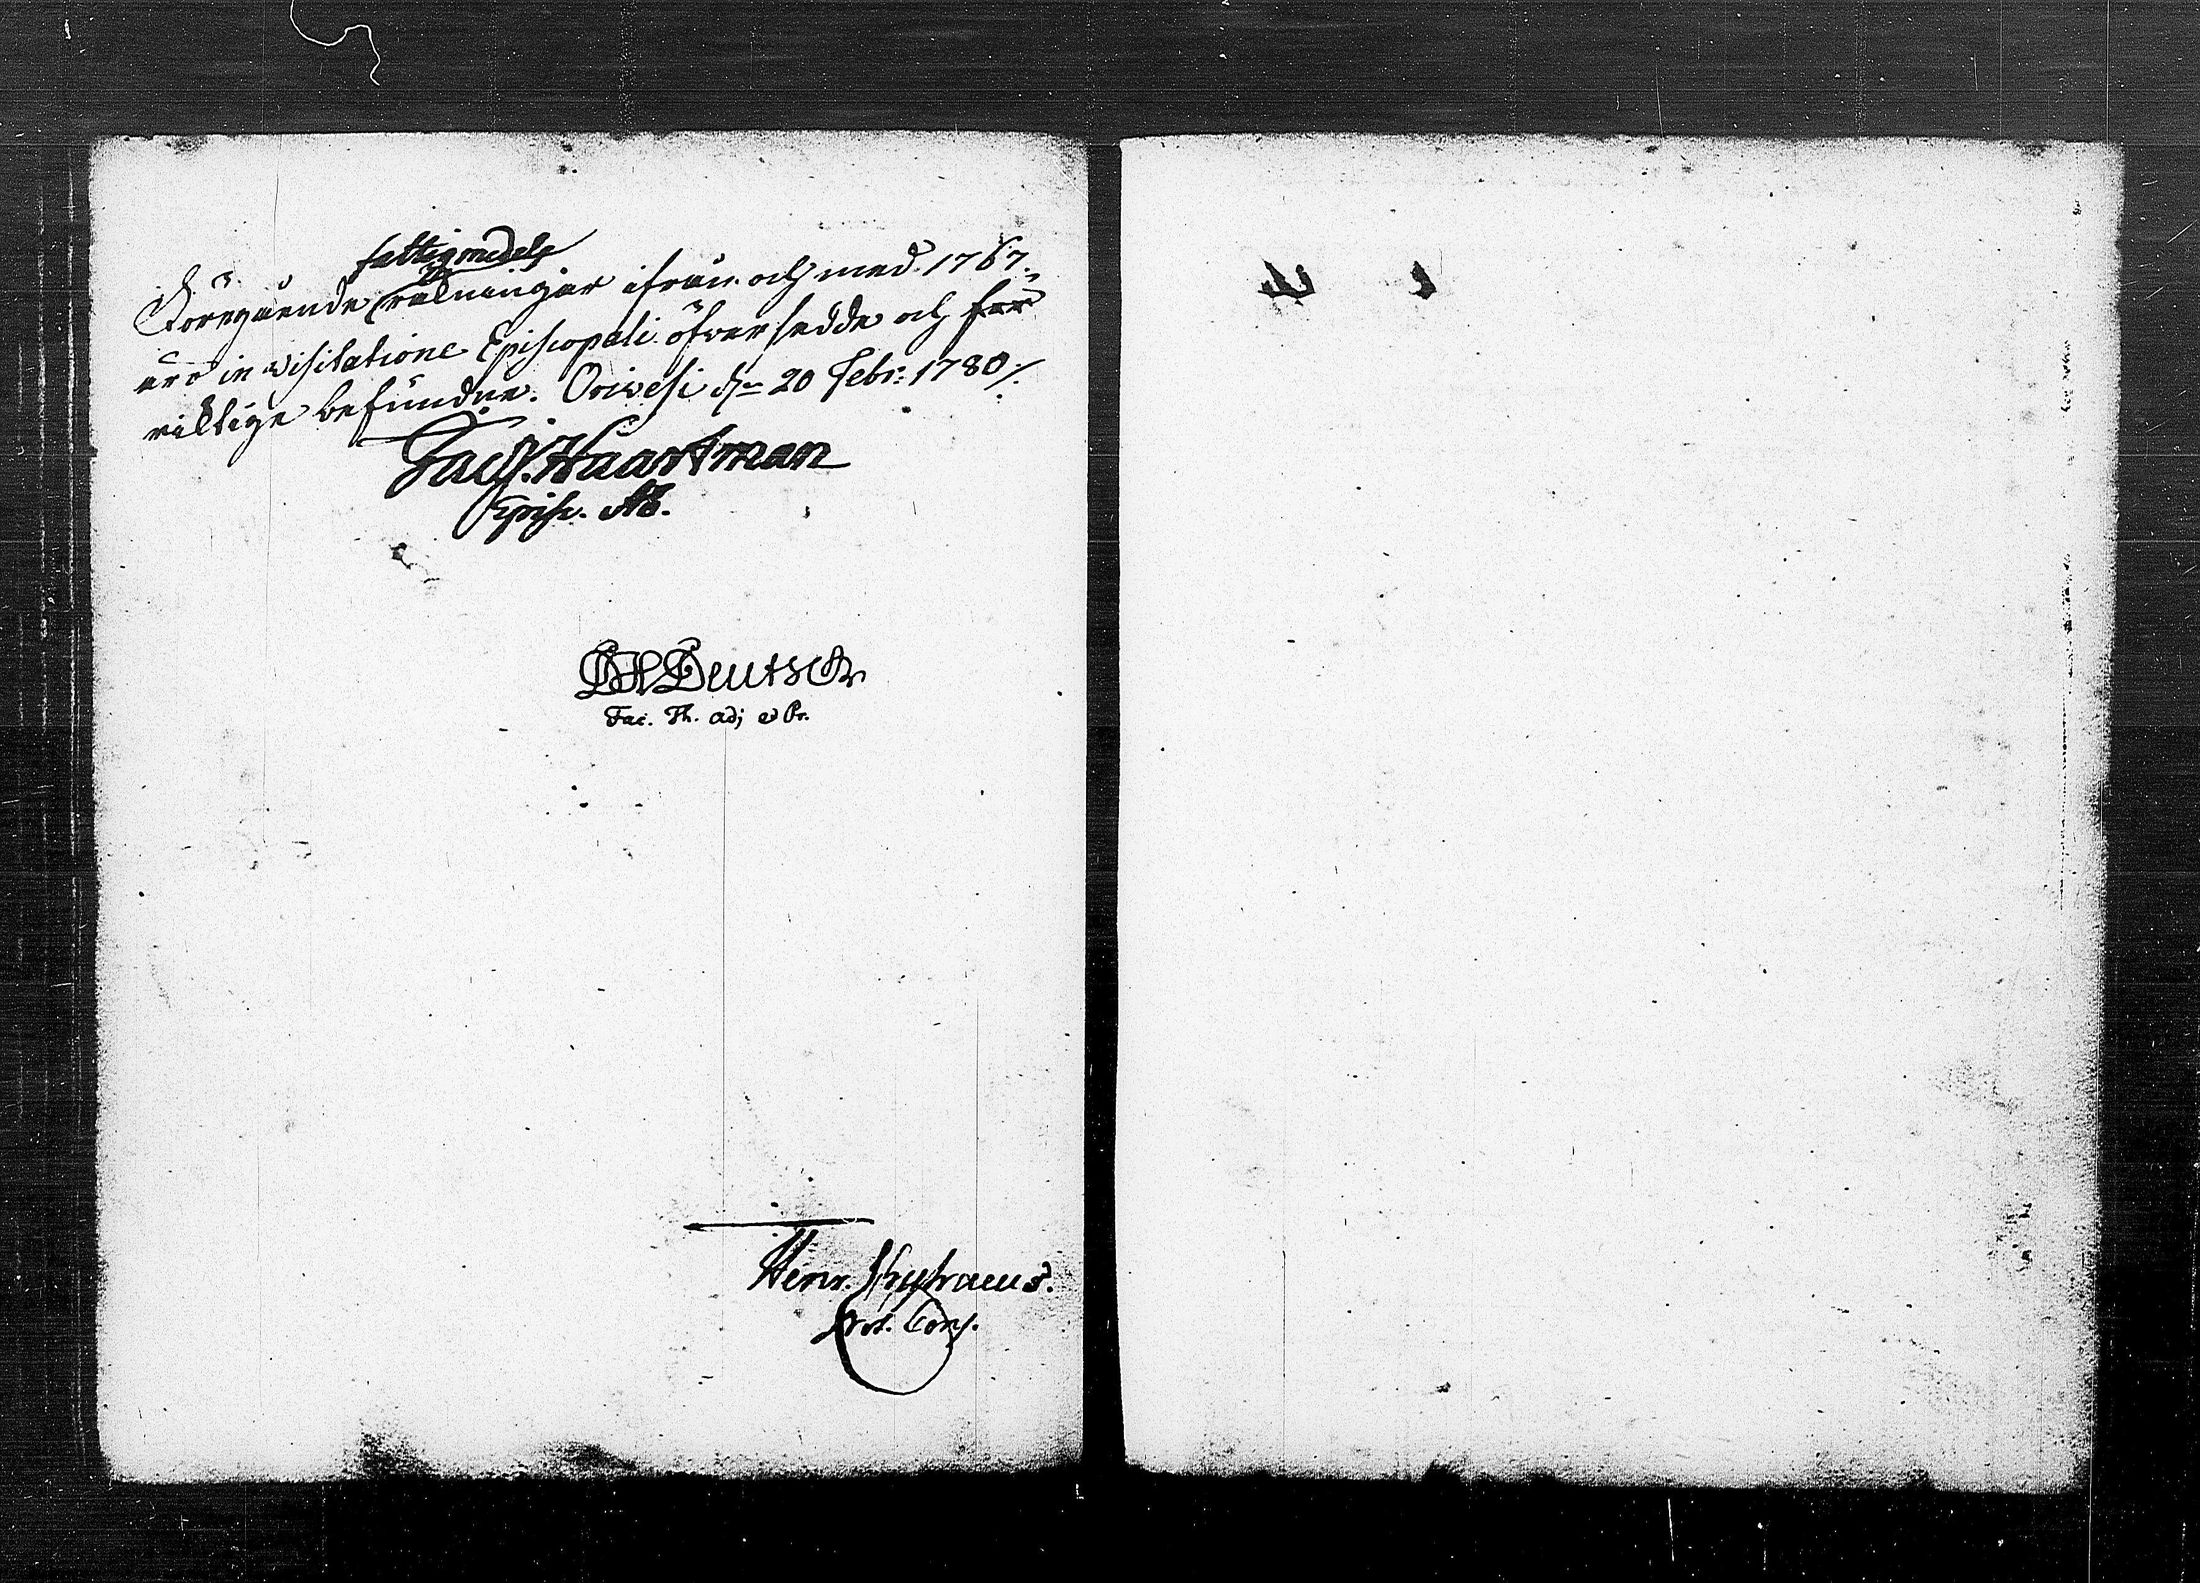 fattigmedels
Föregående räkningar ifrån och med 1767.
äro in visitatione Episcopali öfversedde och för
riktige befundne. Orivesi dn 20 Febr: 1780 /.
Jac. Haartman
Episc. Ab.
Deutsch
Fac. Th. Adj et Pr.
Henr.
Not. Cons.